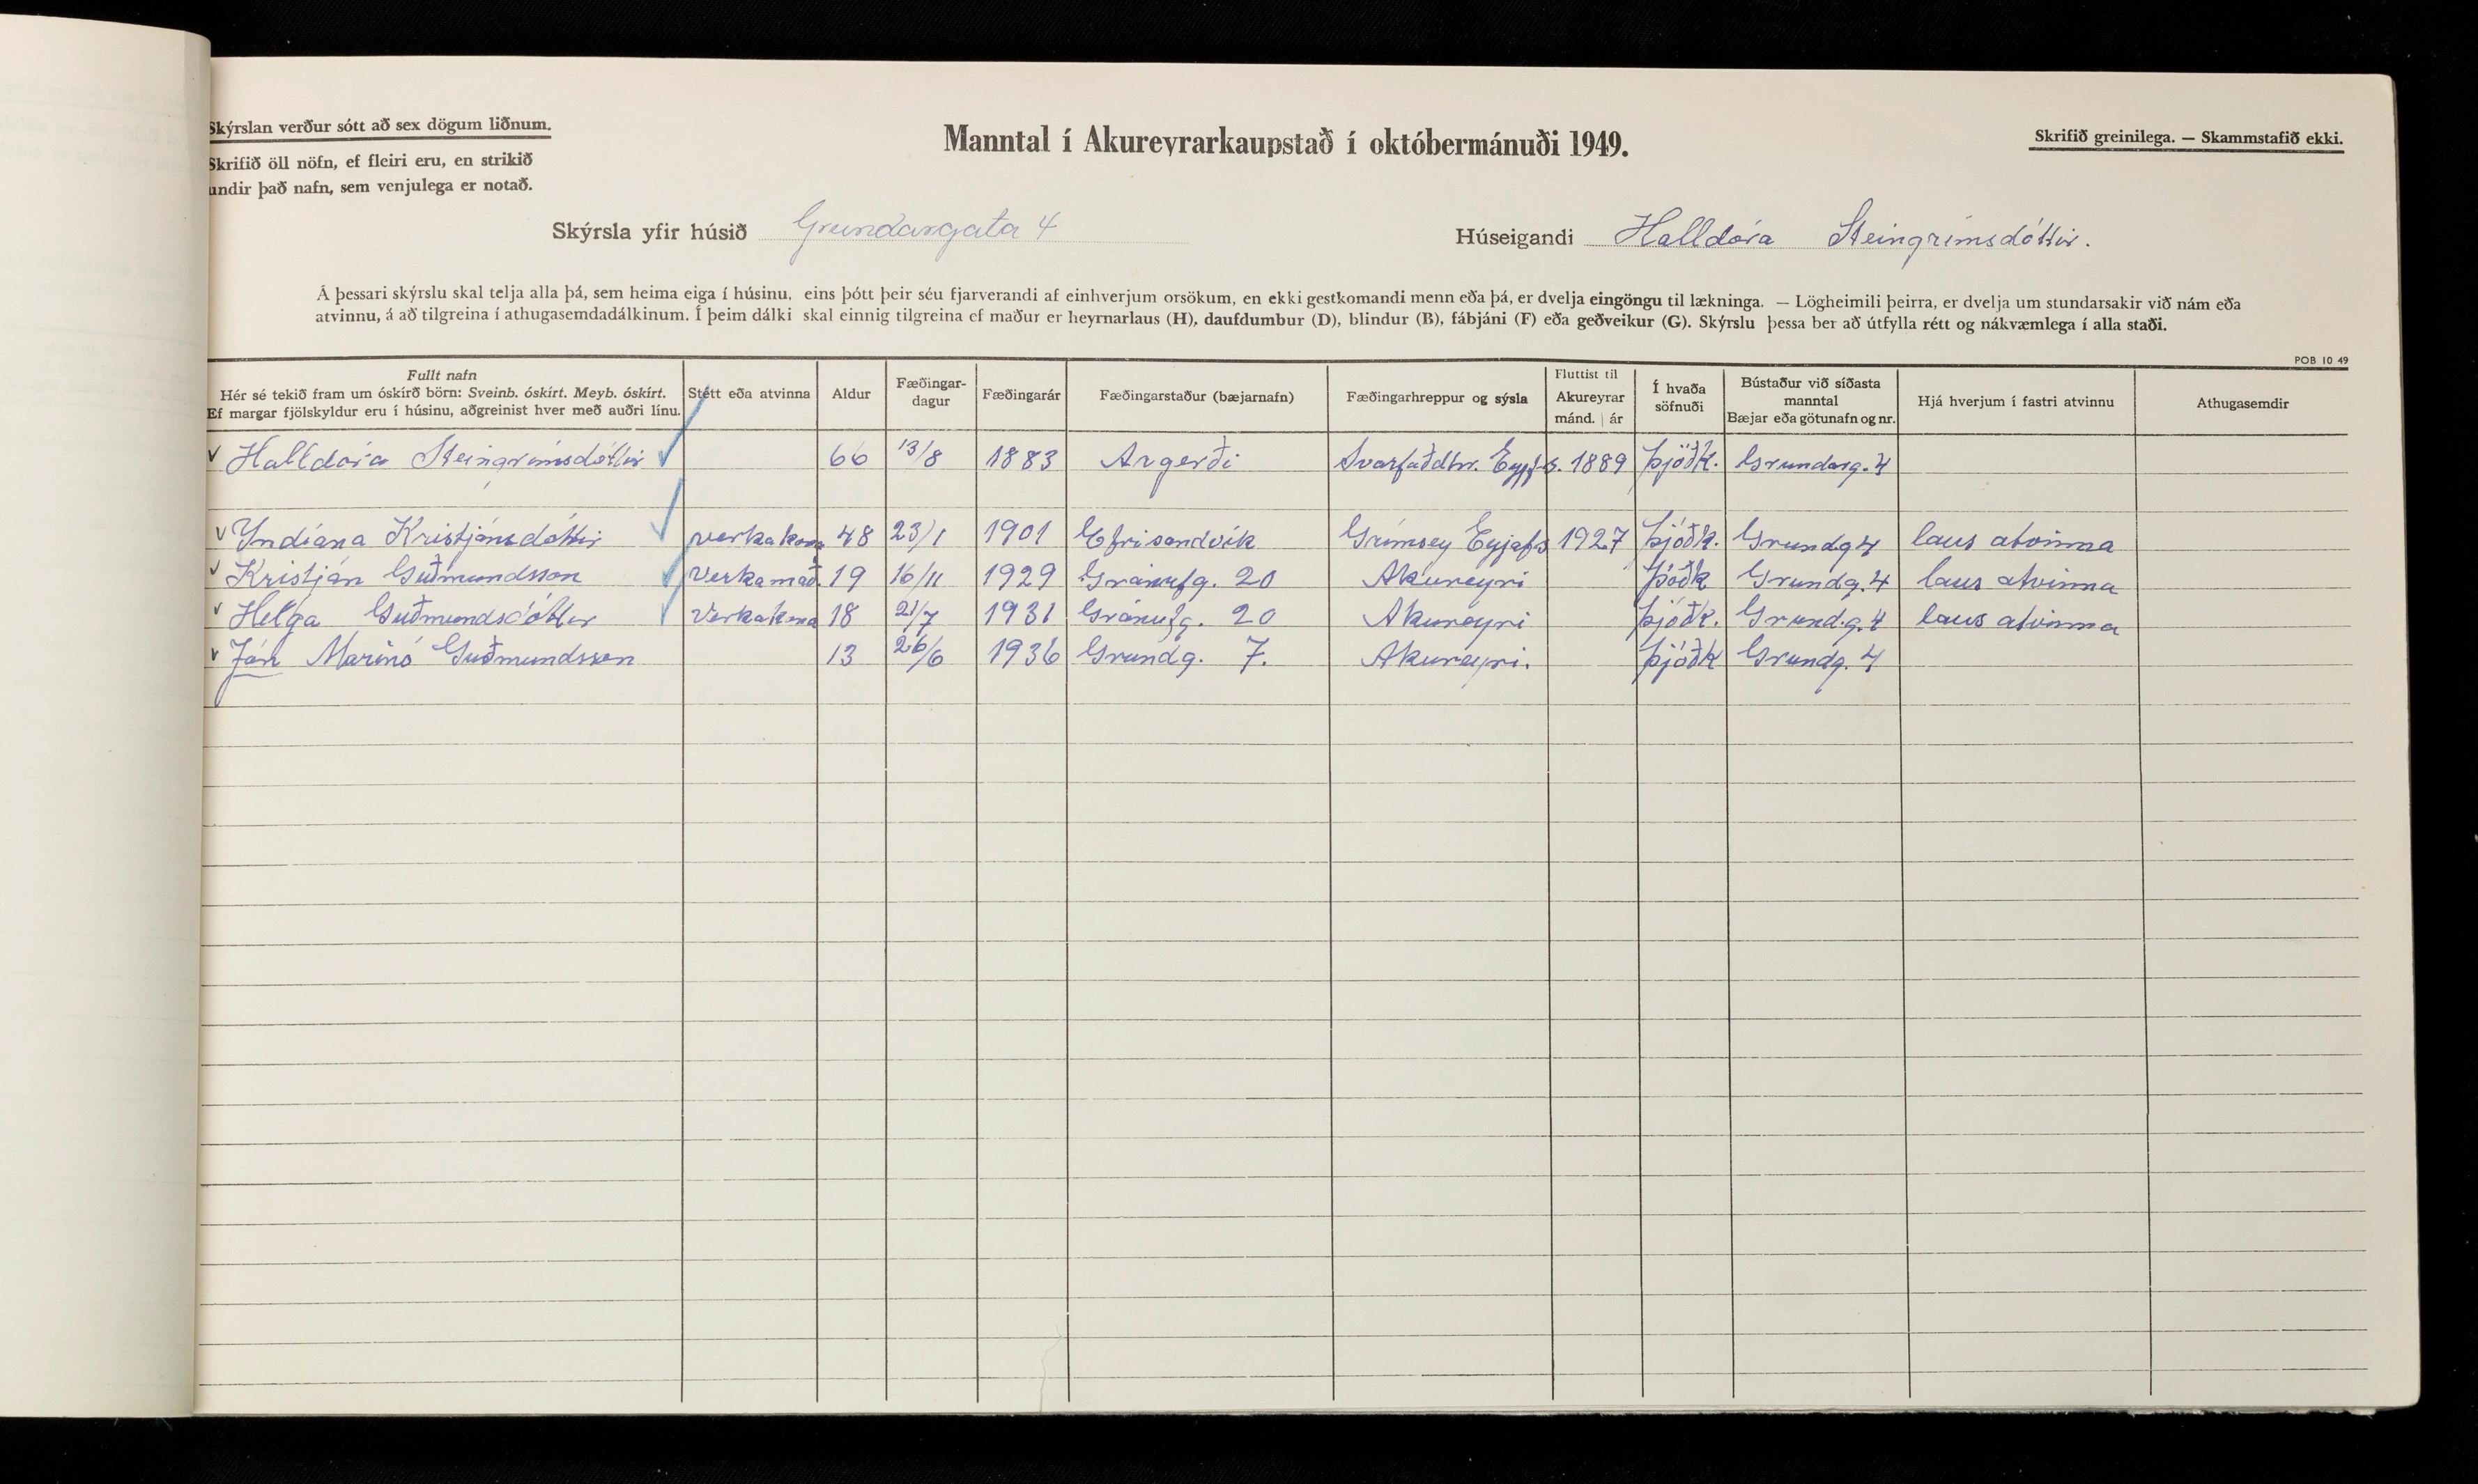 Skýrslan verður sótt að sex dögum liðnum.
Skrifið öll nöfn, ef fleiri eru, en strikið
undir það nafn, sem venjulega er notað.
Manntal í Akureyrarkaupstað í októbermánuði 1949.
Skrifið greinilega. — Skammstafið ekki.
Skýrsla yfir húsið Grundargata 4
Húseigandi Halldóra Steingrímsdóttir.
Á þessari skýrslu skal telja alla þá, sem heima eiga í húsinu, eins þótt þeir séu fjarverandi af einhverjum orsökum, en ekki gestkomandi menn eða þá, er dvelja eingöngu til lækninga. — Lögheimili þeirra, er dvelja um stundarsakir við nám eða
atvinnu, á að tilgreina í athugasemdadálkinum. Í þeim dálki skal einnig tilgreina ef maður er heyrnarlaus (H), daufdumbur (D), blindur (B), fábjáni (F) eða geðveikur (G). Skýrslu þessa ber að útfylla rétt og nákvæmlega í alla staði.
POB 10 49
Fullt nafn
Hér sé tekið fram um óskírð börn: Sveinb. óskírt. Meyb. óskírt.
Ef margar fjölskyldur eru í húsinu, aðgreinist hver með auðri línu.
Stétt eða atvinna
Aldur
Fæðingar-
dagur
Fæðingarár
Fæðingarstaður (bæjarnafn)
Fæðingarhreppur og sýsla
Fluttist til
Akureyrar
mánd. | ár
Í hvaða
söfnuði
Bústaður við síðasta
manntal
Bæjar eða götunafn og nr.
Hjá hverjum í fastri atvinnu
Athugasemdir
Halldóra Steingrímsdóttir 66 13/8 1883 Argerði Svarfaðdhr. Eyjfs. 1889 Þjóðk. Grundarg. 4
Yndíana Kristjánsdóttir verkakona 48 23/1 1901 Efrisandvík Grímsey Eyjafs 1927 Þjóðk. Grundg 4 laus atvinna
Kristján Guðmundsson Verkamað. 19 16/11 1929 Gránufg. 20 Akureyri Þóðk Grundg. 4 laus atvinna
Helga Guðmundsdóttir Verkakona 18 21/7 1931 Gránufg. 20 Akureyri Þjóðk. Grundg. 4 laus atvinna
Jón Marinó Guðmundsson 13 26/6 1936 Grundg. 7. Akureyri. Þjóðk Grundg. 4